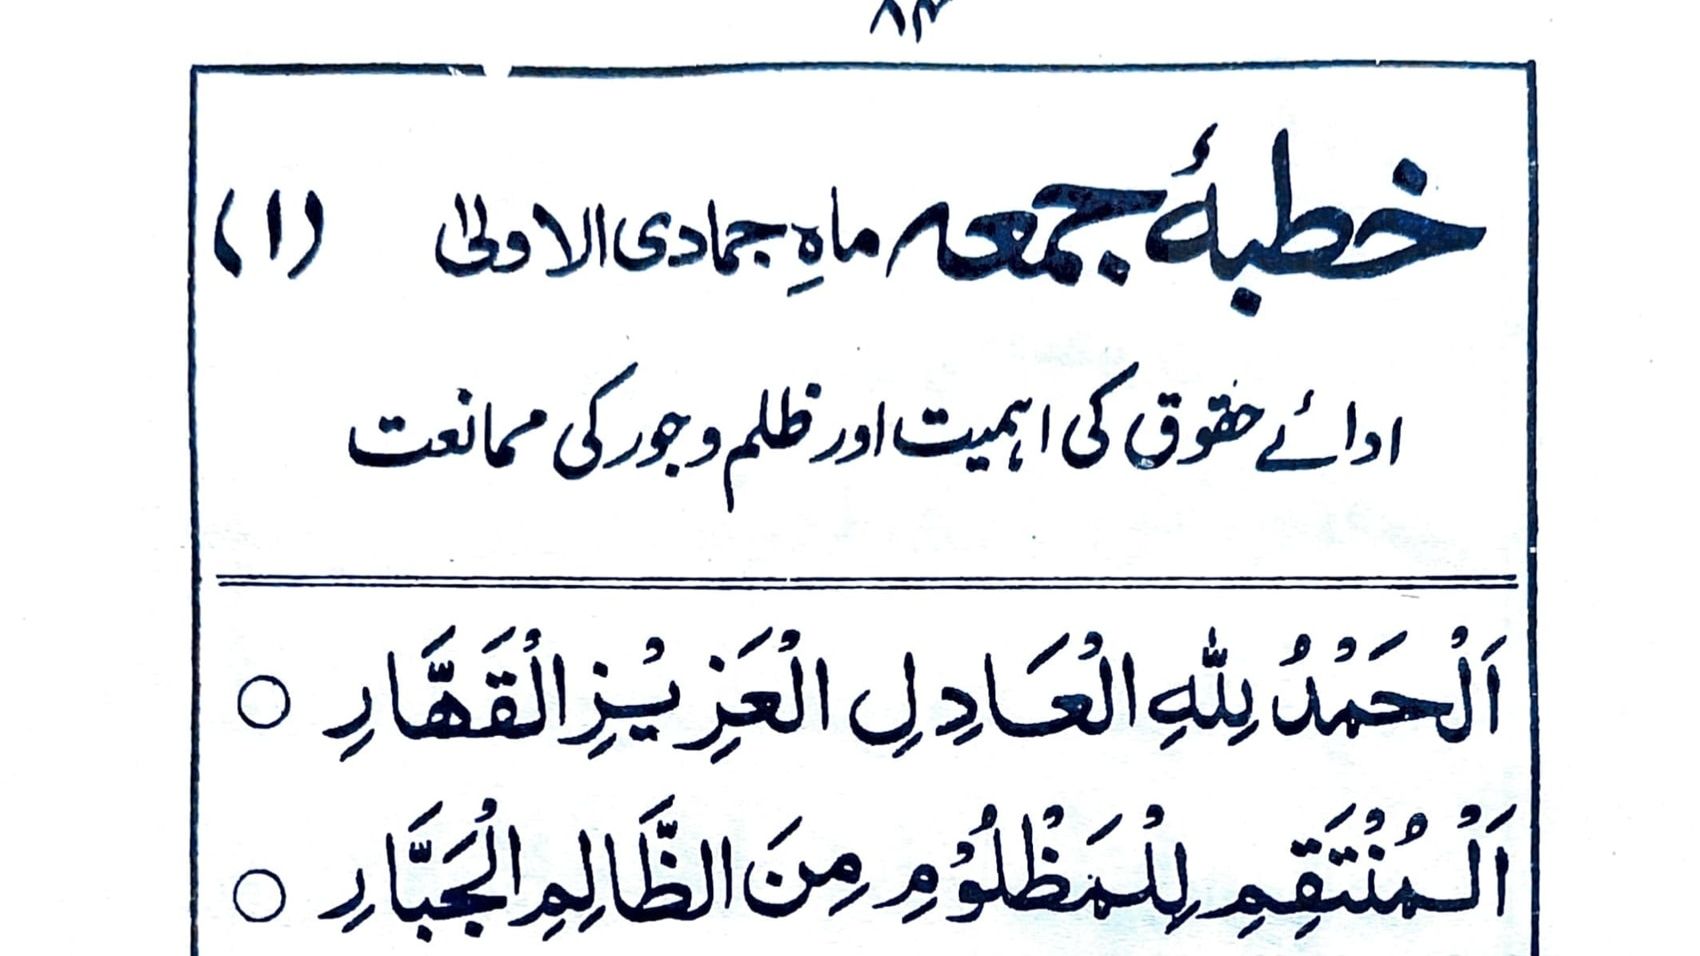 ۸۴
خطبۂ جمعہ ماہِ جمادی الاولیٰ (۱)
ادائے حقوق کی اہمیت اور ظلم و جور کی ممانعت
اَلْحَمْدُ لِلّٰهِ الْعَادِلِ الْعَزِيْزِ الْقَهَّارِ ○
اَلْمُنْتَقِمِ لِلْمَظْلُوْمِ مِنَ الظَّالِمِ الْجَبَّارِ ○